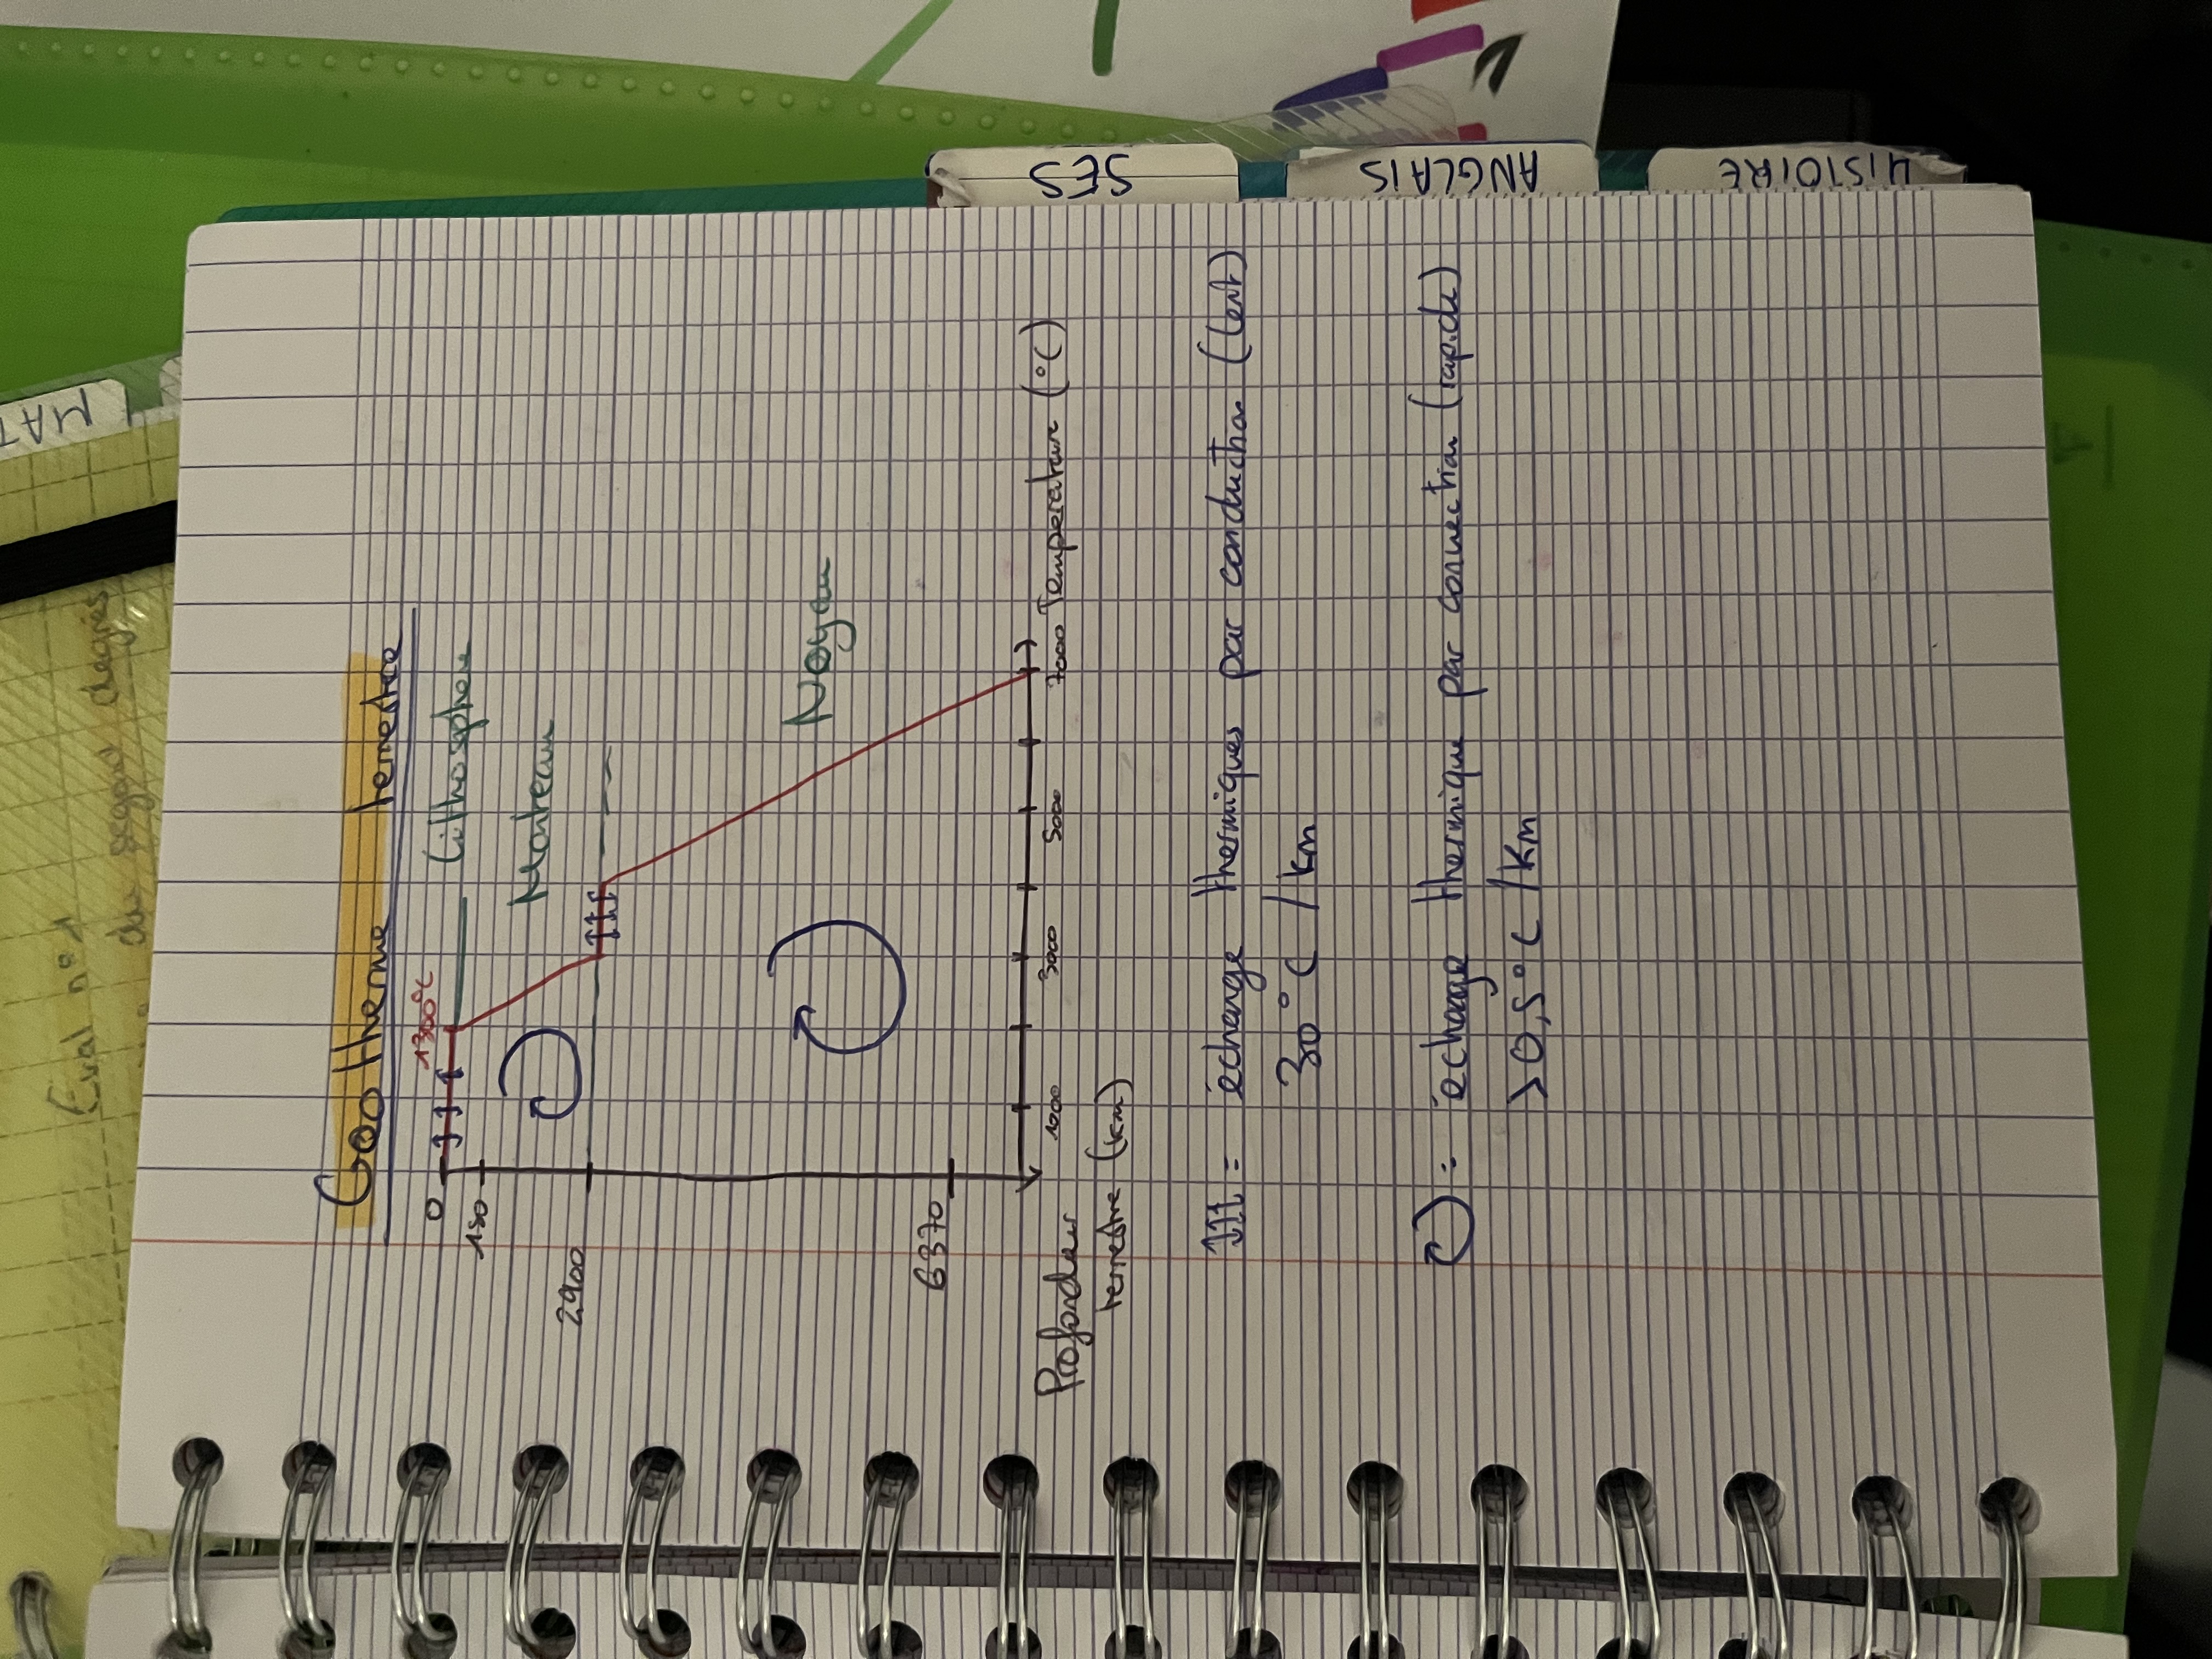 Géotherme terrestre
1300°C
0
Lithosphère
150
Manteau
2900
Noyau
6370
1000
3000
5000
7000
Température (°C)
Profondeur
terrestre (km)
= échange thermiques par conduction (lent)
30°C /km
: échange thermique par convection (rapide)
>0,5°C /km
SES
ANGLAIS
HISTOIRE
MAT
Eval n°1
du second degrés